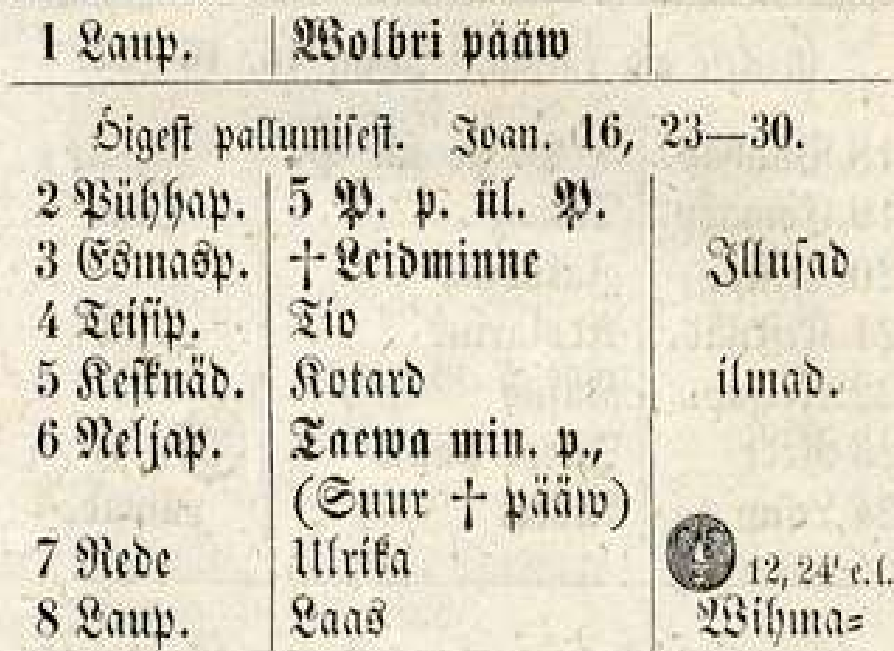 1 Laup. Wolbri pääw
Õigest pallumisest. Joan. 16, 23—30.
2 Pühhap. 5 P. p. ül. P.
3 Esmasp. † Leidminne Illusad
4 Teisip. Tio
5 Kesknäd. Kotard ilmad.
6 Neljap. Taewa min. p.,
(Suur † pääw)
7 Rede Ulrika 12, 24' e.l.
8 Laup. Laas Wihma⸗